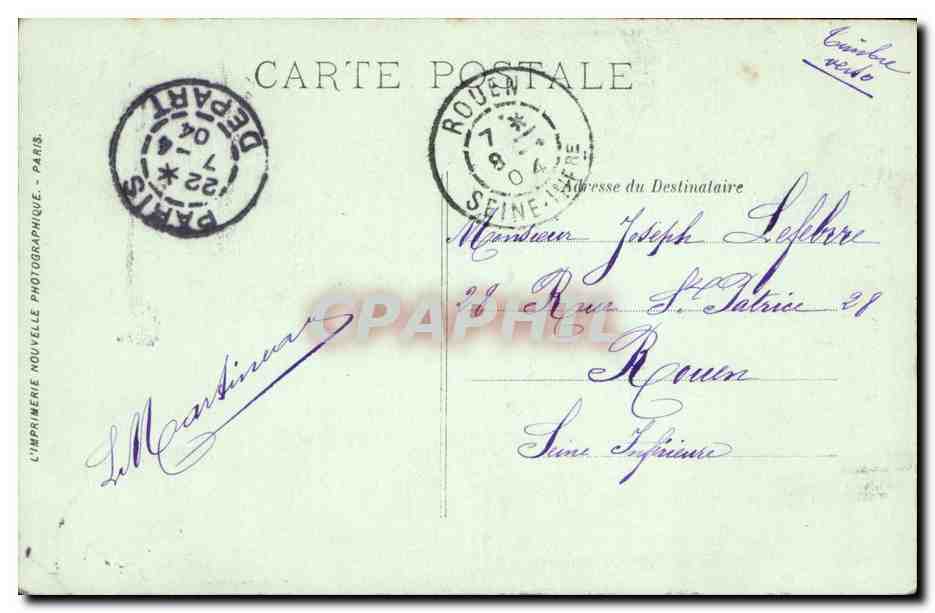 CARTE POSTALE
Timbre
verso
PARIS DEPART
22 *
7 - 4
04
ROUEN
7 *
8
04
SEINE-INFRE
Adresse du Destinataire
Monsieur Joseph Lefebvre
28 Rue St. Patrice 28
Rouen
Seine Inférieure
CPAPHIL
L'IMPRIMERIE NOUVELLE PHOTOGRAPHIQUE. - PARIS.